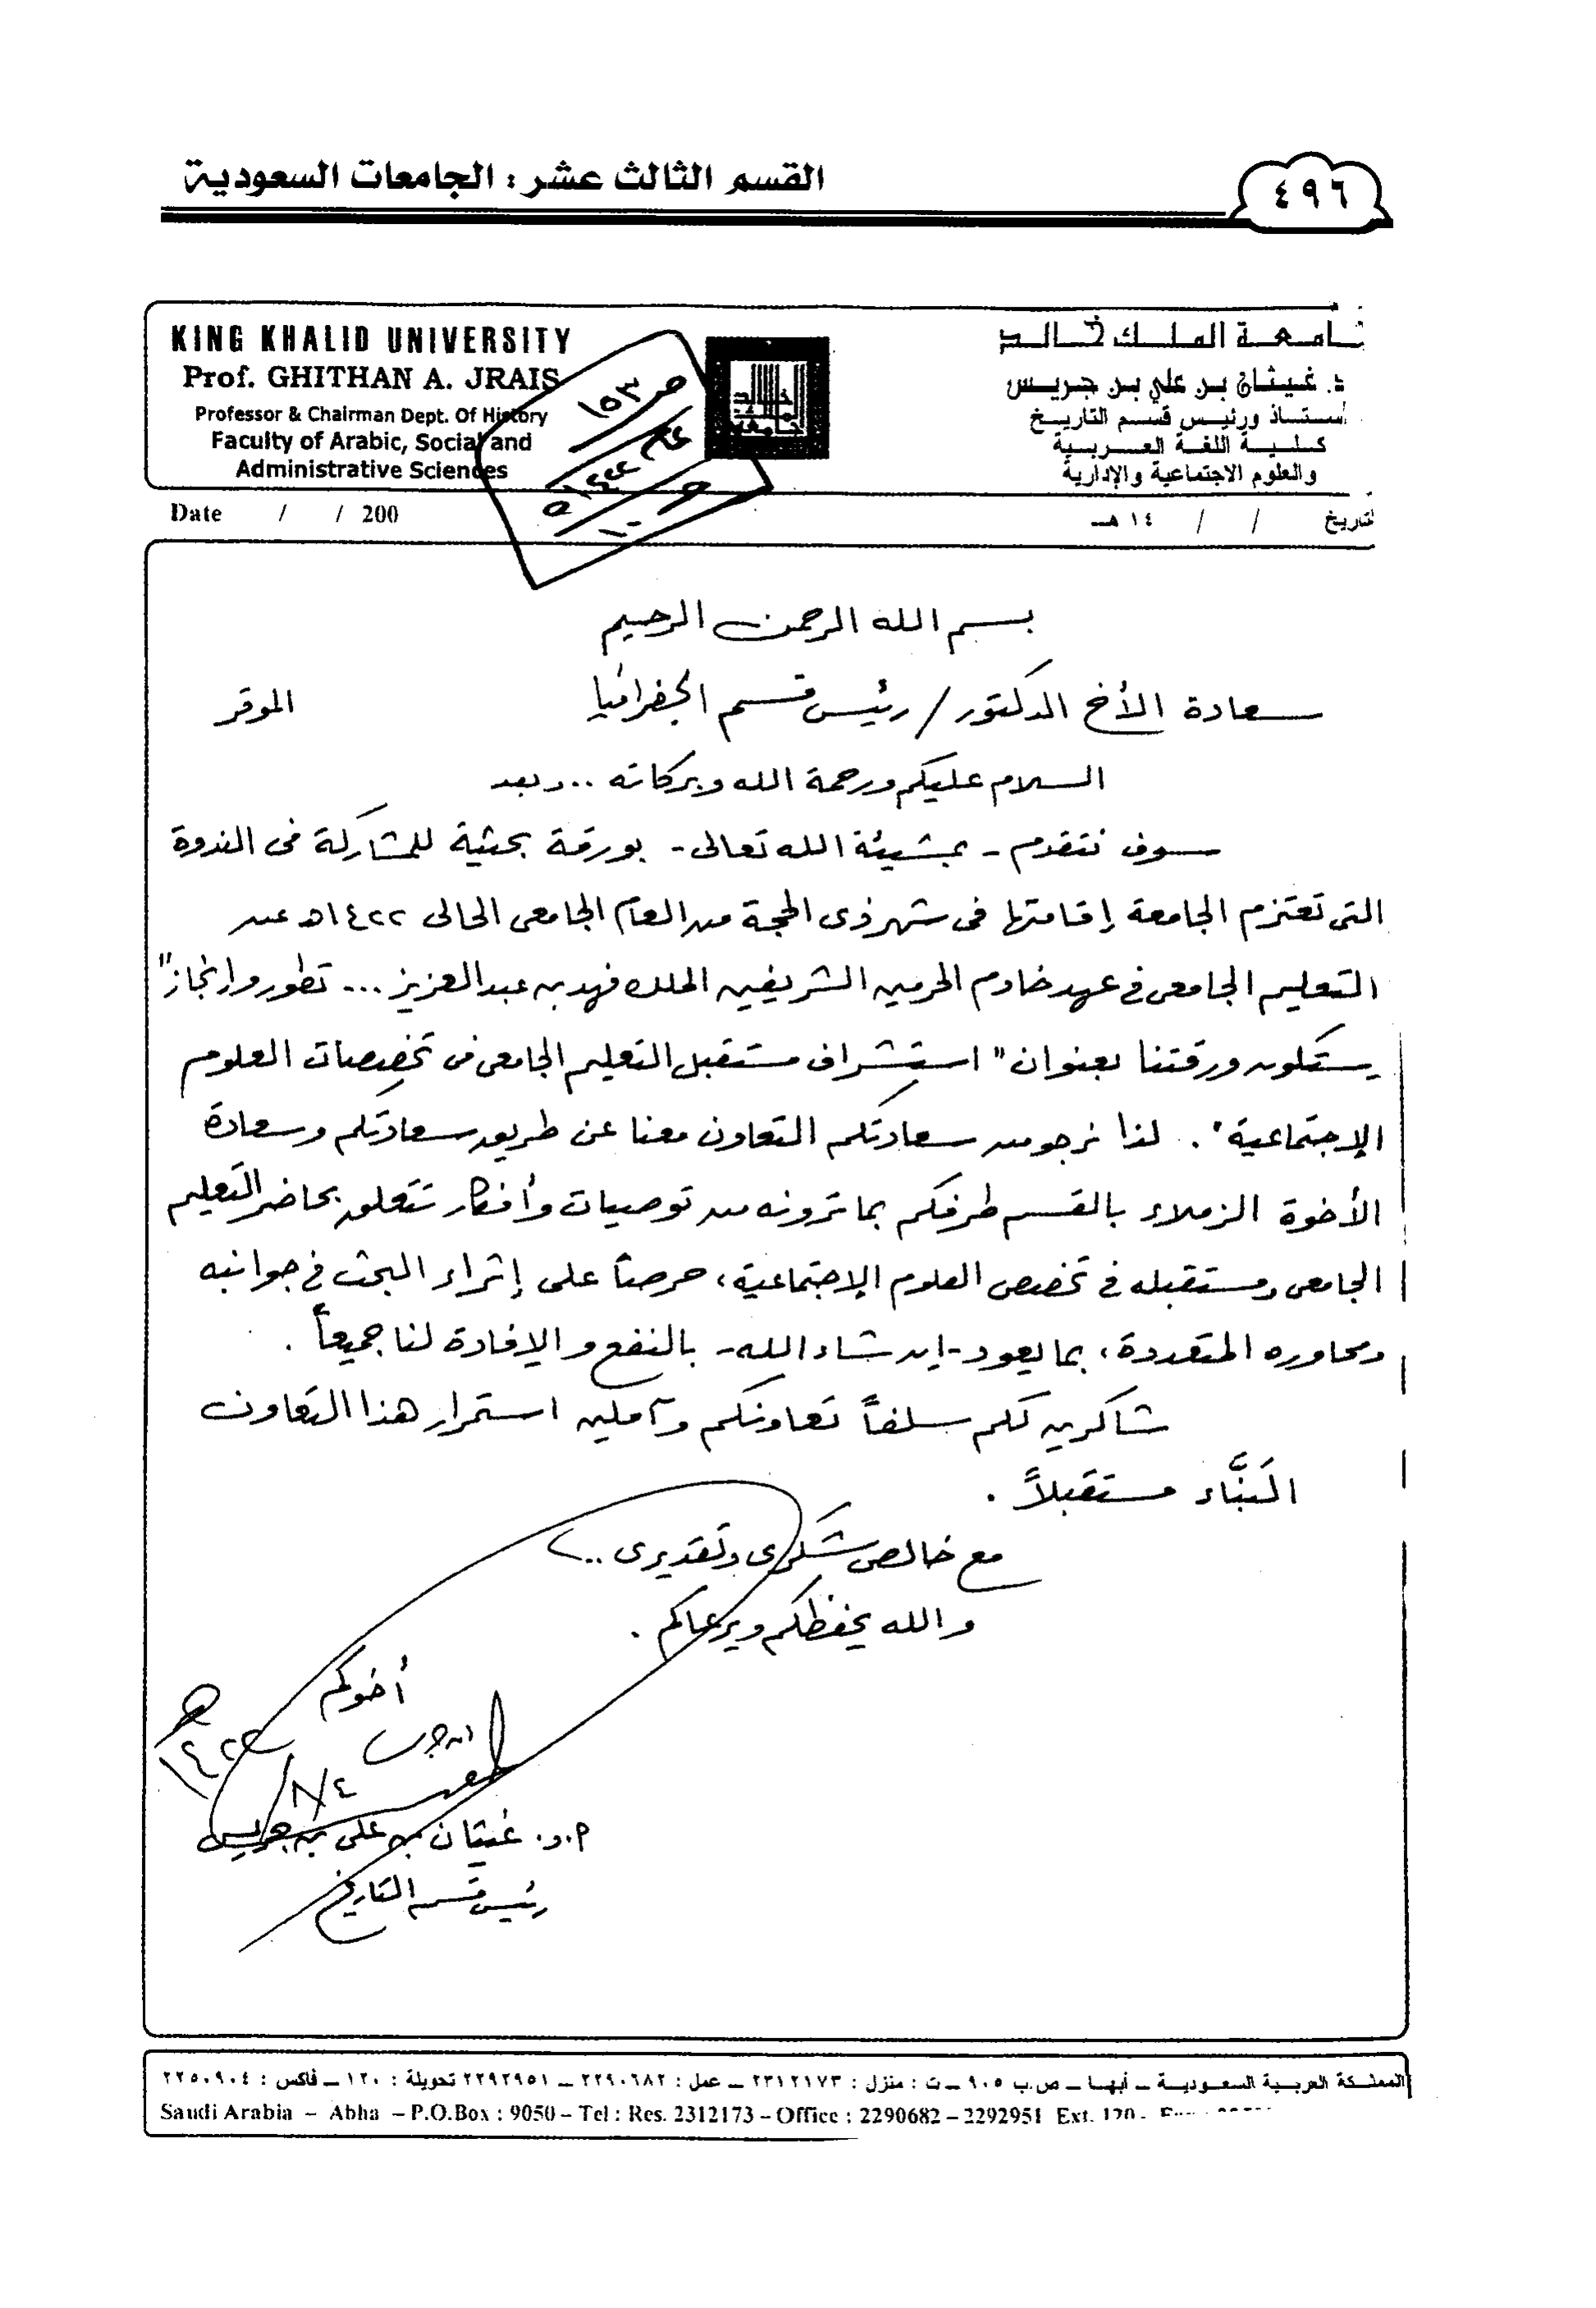 ٤٩٦
القسم الثالث عشر : الجامعات السعودية
KING KHALID UNIVERSITY
Prof. GHITHAN A. JRAIS
Professor & Chairman Dept. Of History
Faculty of Arabic, Social and
Administrative Sciences
ص ١٥٣
عام ١٤٢٢هـ
امعة الملك خالد
د. غيثان بن علي بن جريس
أستاذ ورئيس قسم التاريخ
كلية اللغة العربية
والعلوم الاجتماعية والإدارية
Date / / 200
تاريخ / / ١٤ هـ
بسم الله الرحمن الرحيم
سعادة الأخ الدكتور / رئيس قسم الجغرافيا الموقر
السلام عليكم ورحمة الله وبركاته .. وبعد
سوف نتقدم - بمشيئة الله تعالى - بورقة بحثية للمشاركة فى الندوة
التى تعتزم الجامعة إقامتها فى شهر ذى الحجة من العام الجامعى الحالى ١٤٢٢هـ عن
التعليم الجامعى في عهد خادم الحرمين الشريفين الملك فهد بن عبدالعزيز ... تطور وإنجاز"
ستكون ورقتنا بعنوان " استشراف مستقبل التعليم الجامعى فى تخصصات العلوم
الإجتماعية" . لذا نرجو من سعادتكم التعاون معنا عن طريق سعادتكم وسعادة
الأخوة الزملاء بالقسم طرفكم بما ترونه من توصيات وأفكار تتعلق بحاضر التعليم
الجامعى ومستقبله في تخصص العلوم الإجتماعية، حرصاً على إثراء البحث في جوانبه
ومحاوره المتعددة، بما يعود - إن شاء الله - بالنفع والإفادة لنا جميعاً .
شاكرين لكم سلفاً تعاونكم وآملين استمرار هذا التعاون
البنَّاء مستقبلاً .
مع خالص شكرى وتقديرى ..
والله يحفظكم ويرعاكم .
أخوكم
٨/٤/ ١٤٢٢هـ
أ.د. غيثان بن على بن جريس
رئيس قسم التاريخ
المملكة العربية السعودية – أبها – ص.ب ٩٠٥ – ت : منزل : ٢٣١٢١٧٣ – عمل : ٢٢٩٠٦٨٢ – ٢٢٩٢٩٥١ تحويلة : ١٢٠ – فاكس : ٢٢٥٠٩٠٤
Saudi Arabia – Abha – P.O.Box : 9050 – Tel : Res. 2312173 – Office : 2290682 – 2292951 Ext. 120 -